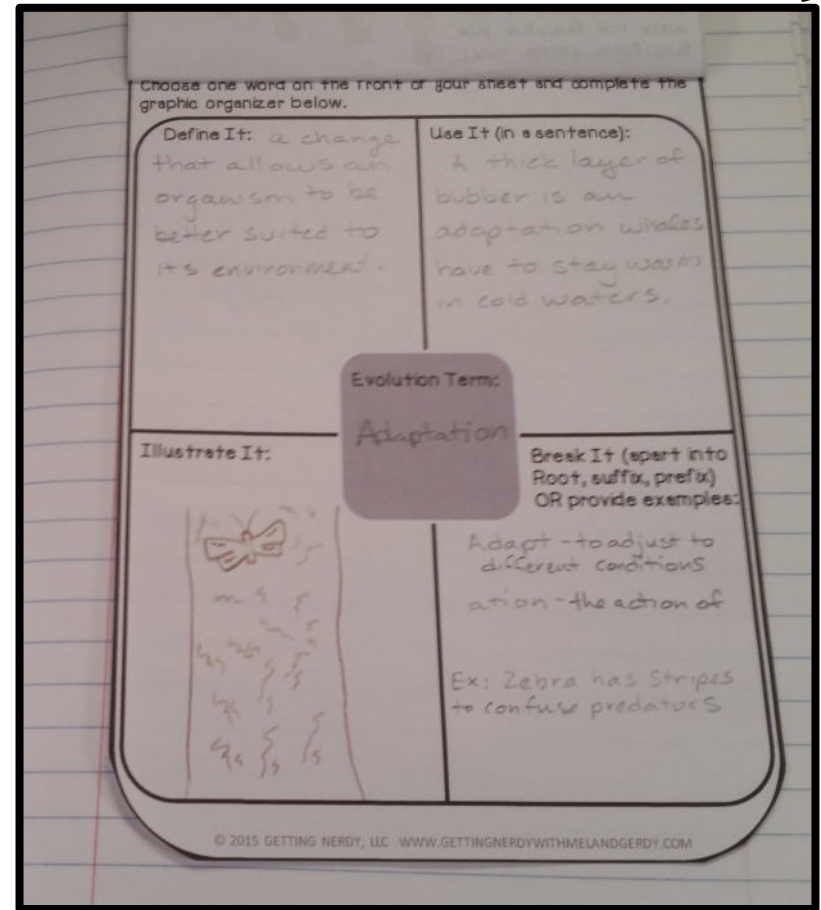 Choose one word on the front of your sheet and complete the
graphic organizer below.
Define It: a change
that allows an
organism to be
better suited to
its environment.
Use It (in a sentence):
A thick layer of
blubber is an
adaptation whales
have to stay warm
in cold waters.
Evolution Term:
Adaptation
Illustrate It:
Break It (apart into
Root, suffix, prefix)
OR provide examples:
Adapt - to adjust to
different conditions
ation - the action of
Ex: Zebra has Stripes
to confuse predators
© 2015 GETTING NERDY, LLC WWW.GETTINGNERDYWITHMELANDGERDY.COM